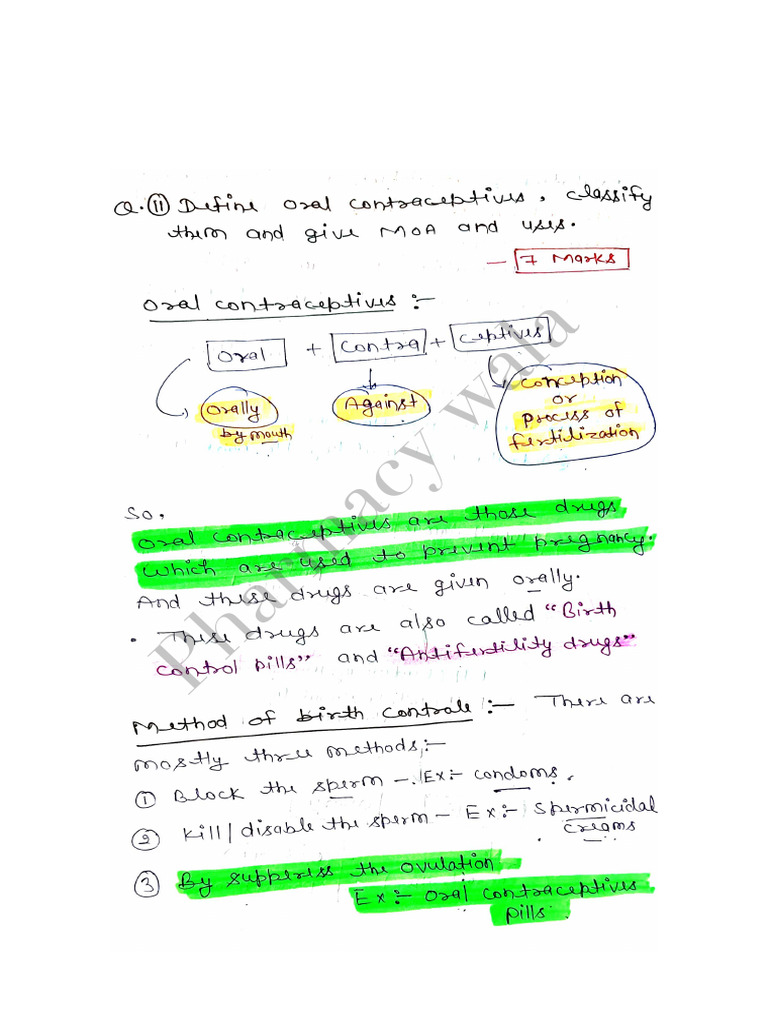 Q. 11 Define oral contraceptives, classify
them and give MOA and uses.
— 7 Marks
Oral contraceptives :-
Oral + Contra + Ceptives
Orally
by mouth
Against
Conception
or
Process of
fertilization
So,
Oral contraceptives are those drugs
which are used to prevent pregnancy.
And these drugs are given orally.
• These drugs are also called "Birth
control pills" and "Antifertility drugs"
Method of birth controle :- There are
mostly three methods:-
① Block the sperm - Ex:- condoms.
② Kill/disable the sperm - Ex:- Spermicidal
creams
③ By suppress the ovulation
Ex:- oral contraceptives
pills.
Pharmacy wala